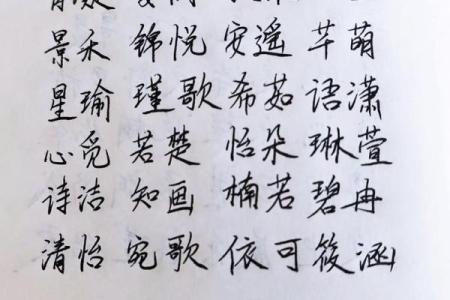 景禾 锦悦 安遥 芊萌
星瑜 瑾歌 希茹 语潇
心觅 若楚 怡朵 琳萱
诗洁 知画 楠若 碧冉
清怡 宛歌 依可 筱涵